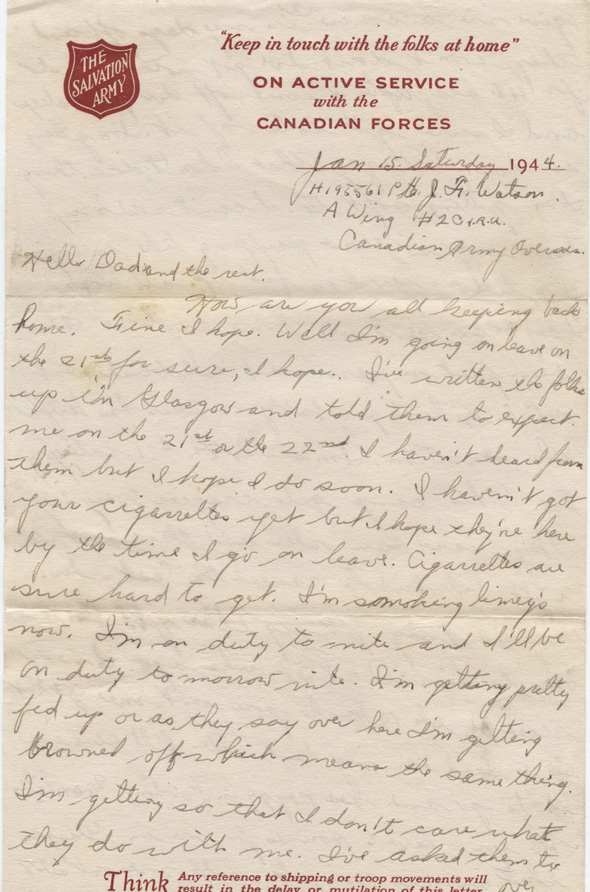 THE
SALVATION
ARMY
"Keep in touch with the folks at home"
ON ACTIVE SERVICE
with the
CANADIAN FORCES
Jan 15. Saturday 1944.
H195561 Pte. J. F. Watson.
A Wing H2C.I.R.U.
Canadian Army Overseas.
Hello Dad and the rest.
How are you all keeping back
home. Fine I hope. Well I'm going on leave on
the 21st for sure, I hope.. I've written the folks
up in Glasgow and told them to expect
me on the 21st or the 22nd. I haven't heard from
them but I hope I do soon. I haven't got
your cigarrettes yet but I hope they're here
by the time I go on leave. Cigarrettes are
sure hard to get. I'm somoking limey's
now. I'm on duty to nite and I'll be
on duty to morrow nite. I'm getting pretty
fed up or as they say over here I'm getting
browned off which means the same thing.
I'm getting so that I don't care what
they do with me. I've asked them to
Think Any reference to shipping or troop movements will
result in the delay or mutilation of this letter